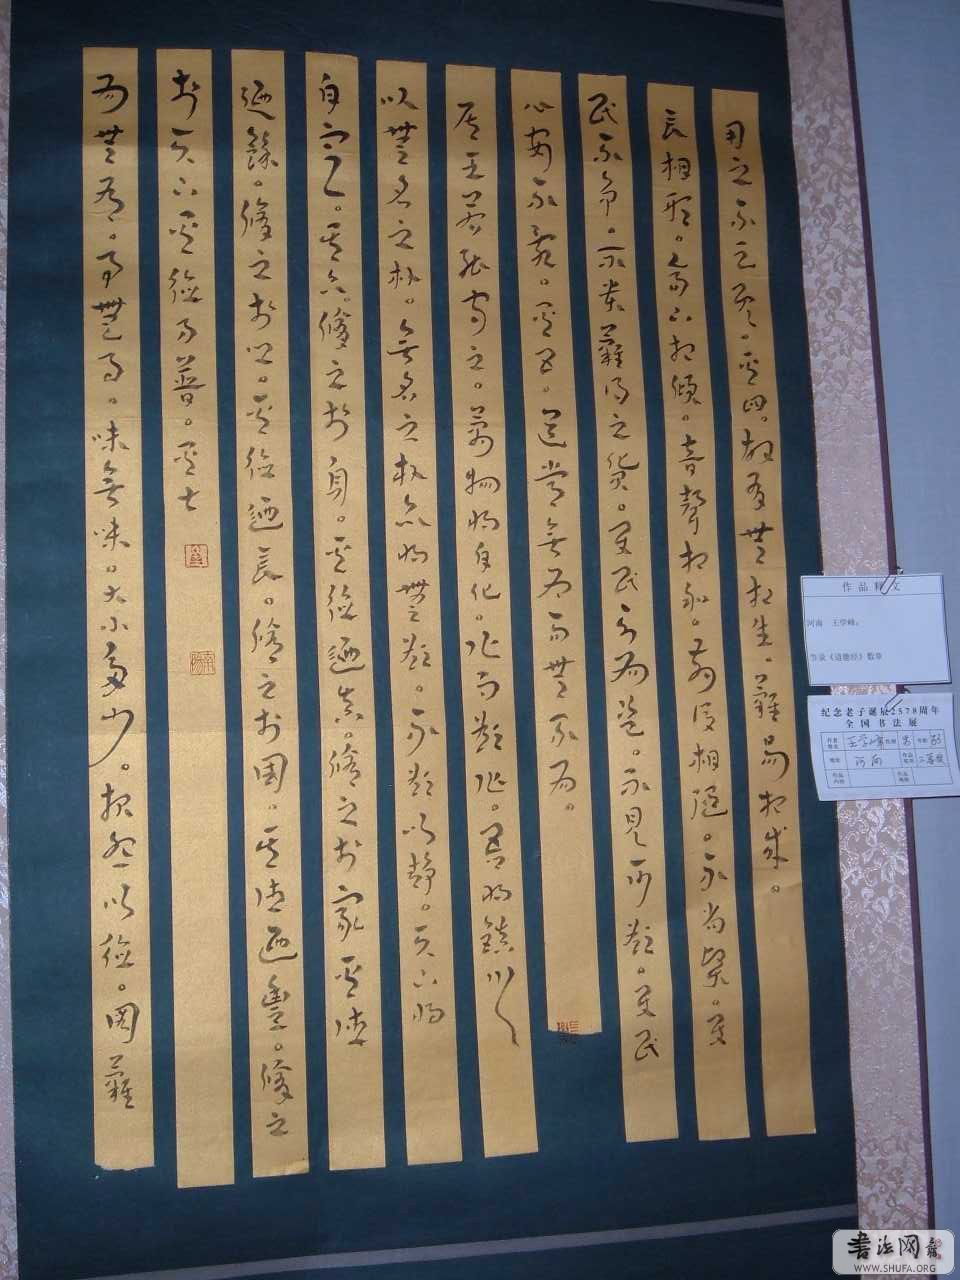 用之不。其四。故有無相生。難易相成。
長相形。高下相傾。音聲相和。前後相隨。不尚賢。使
民不爭。不貴難得之貨。使民不為盜。不見可欲。使民
心不亂。其五。道常無為而無不為。
侯王若能守之。萬物將自化。化而欲作。吾將鎮
以無名之樸。無名之樸亦將無欲。不欲以靜。天下將
自定。其六。修之於身。其德迺真。修之於家其德
迺餘。修之於。其德迺長。修之於國。其德迺豐。修之
於天下其德乃普。其七
為無為。事無事。味無味。大小多少。報怨以德。圖難
作品释文
河南 王学峰:
节录《道德经》数章
纪念老子诞辰2578周年
全国书法展
作者姓名 王学峰 性别 男 年龄
地址 河南 作品奖项 三等奖
作品内容 作品规格
書法网
WWW.SHUFA.ORG